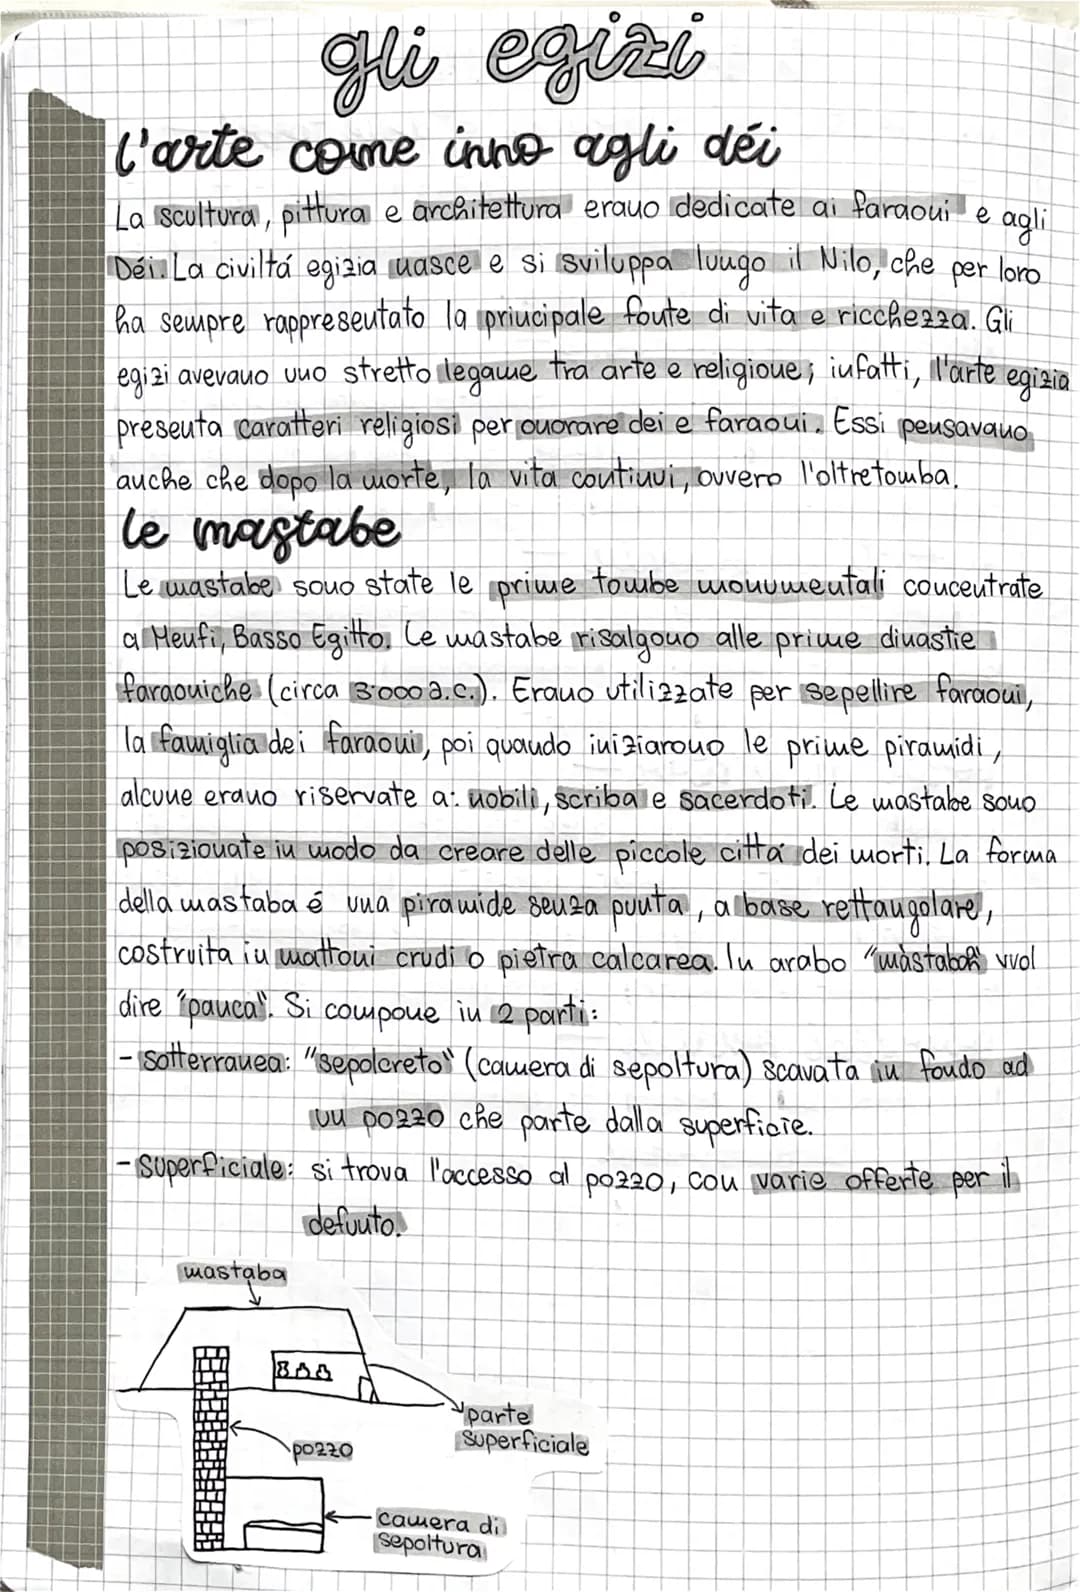 gli egizi
l'arte come inno agli déi
La scultura, pittura e architettura erano dedicate ai faraoni e agli
Déi. La civiltá egizia nasce e si sviluppa lungo il Nilo, che per loro
ha sempre rappresentato la principale fonte di vita e ricchezza. Gli
egizi avevano uno stretto legame tra arte e religione; infatti, l'arte egizia
presenta caratteri religiosi per onorare dei e faraoni. Essi pensavano
anche che dopo la morte, la vita continui, ovvero l'oltretomba.
le mastabe
Le mastabe sono state le prime tombe monumentali concentrate
a Menfi, Basso Egitto. Le mastabe risalgono alle prime dinastie
faraoniche (circa 3.000 a.C.). Erano utilizzate per sepellire faraoni,
la famiglia dei faraoni, poi quando iniziarono le prime piramidi,
alcune erano riservate a: nobili, scriba e sacerdoti. Le mastabe sono
posizionate in modo da creare delle piccole cittá dei morti. La forma
della mastaba é una piramide senza punta, a base rettangolare,
costruita in mattoni crudi o pietra calcarea. In arabo "màstabah" vuol
dire "panca". Si compone in 2 parti:
- sotterranea: "sepolcreto" (camera di sepoltura) scavata in fondo ad
un pozzo che parte dalla superficie.
- superficiale: si trova l'accesso al pozzo, con varie offerte per il
defunto.
mastaba
parte
superficiale
pozzo
camera di
sepoltura